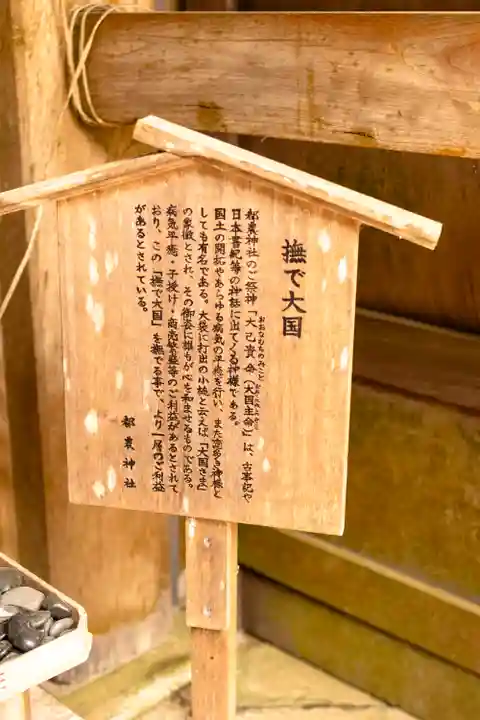 撫で大国
都農神社のご祭神「大己貴命(大国主命)」は、古事記や
おおなむちのみこと
日本書紀等の神話に出てくる神様である。
国土の開拓やあらゆる病気の平癒を行い、また恋多き神様と
しても有名である。大袋に打出の小槌と云えば「大国さま」
の象徴とされ、その御姿に誰もが心を和ませるものである。
病気平癒・子授け・商売繁盛等のご利益があるとされて
おり、この「撫で大国」を撫でる事で、より一層のご利益
があるとされている。
都農神社